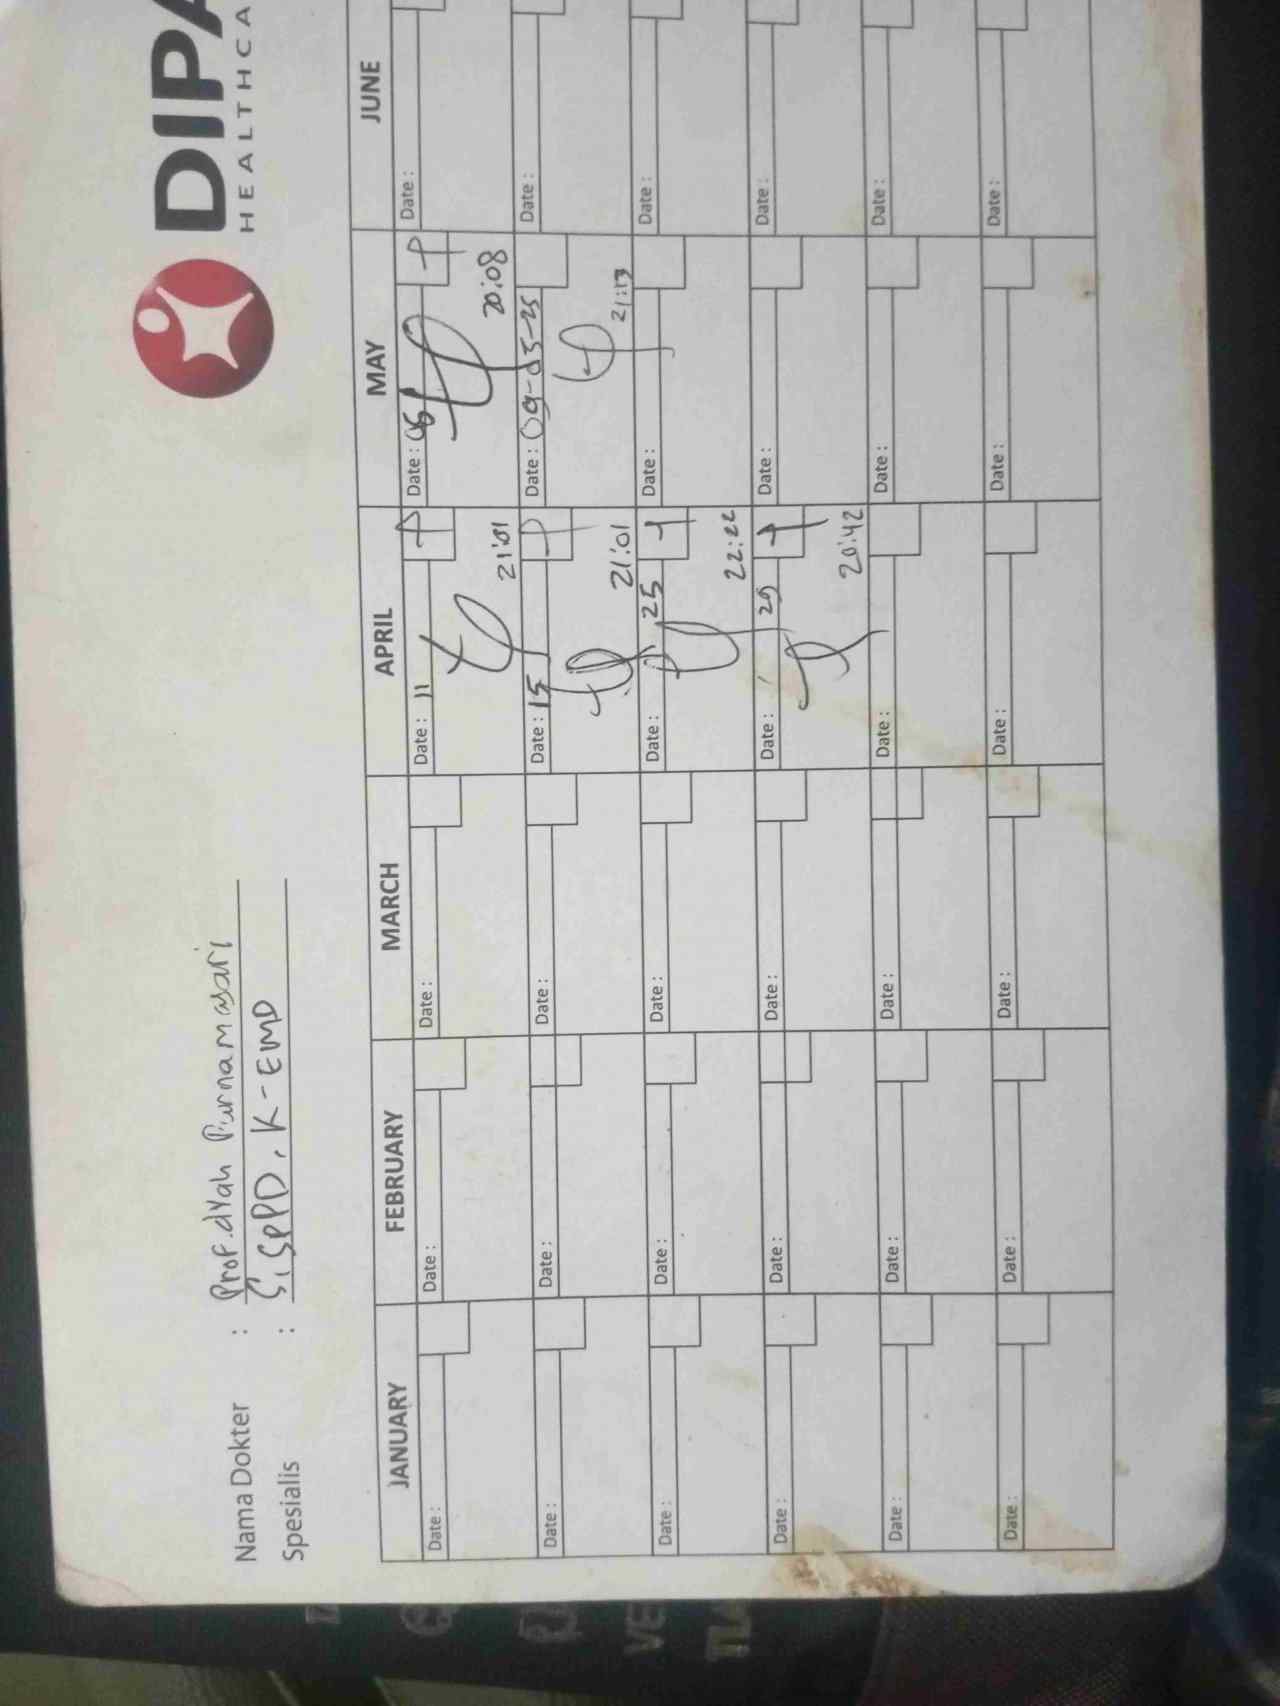 DIPA
HEALTHCA
Nama Dokter : Prof. dYah Purnamasari
Spesialis : S, SpPD, K-EMD
JANUARY FEBRUARY MARCH APRIL MAY JUNE
Date : Date : Date : Date : 11 Date : 06 Date :
21:01 20:08
Date : Date : Date : Date : 15 Date : 09-05-25 Date :
21:01 21:13
Date : Date : Date : Date : 25 Date : Date :
22:22
Date : Date : Date : Date : 29 Date : Date :
20:42
Date : Date : Date : Date : Date : Date :
Date : Date : Date : Date : Date : Date :
VE